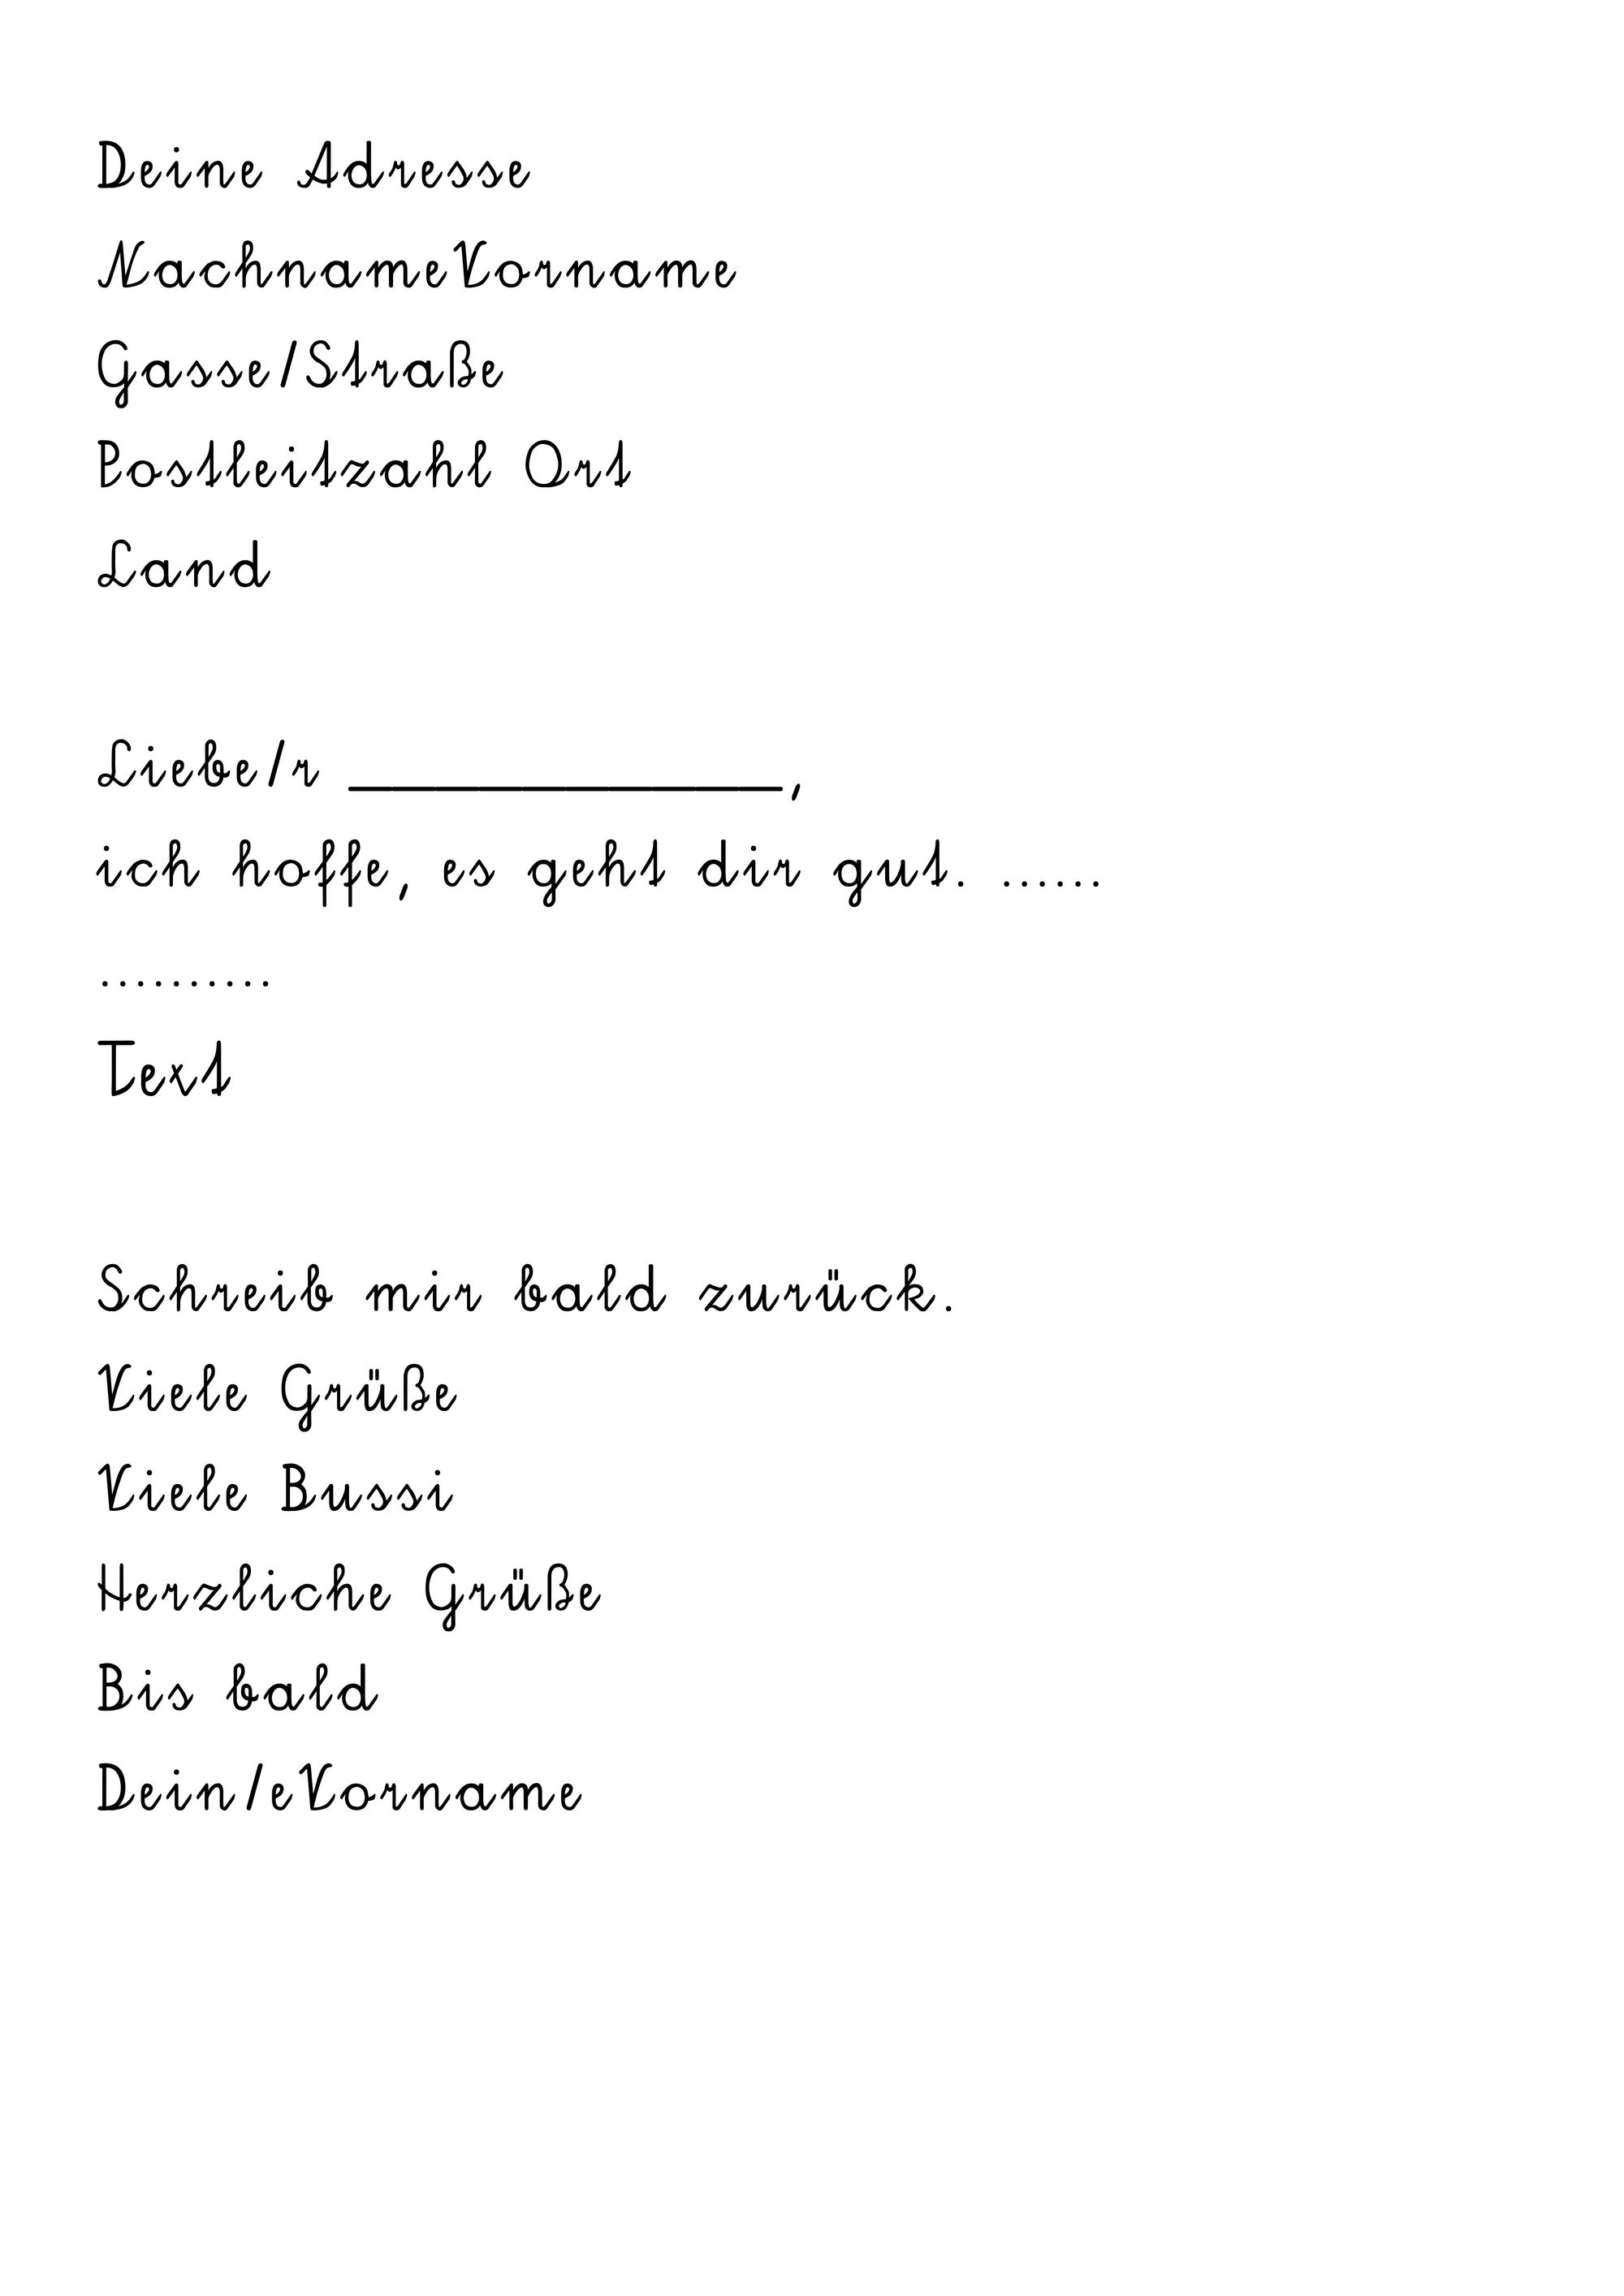 Deine Adresse
NachnameVorname
Gasse/Straße
Postleitzahl Ort
Land
Liebe/r __________,
ich hoffe, es geht dir gut. ......
..........
Text
Schreib mir bald zurück.
Viele Grüße
Viele Bussi
Herzliche Grüße
Bis bald
Dein/eVorname